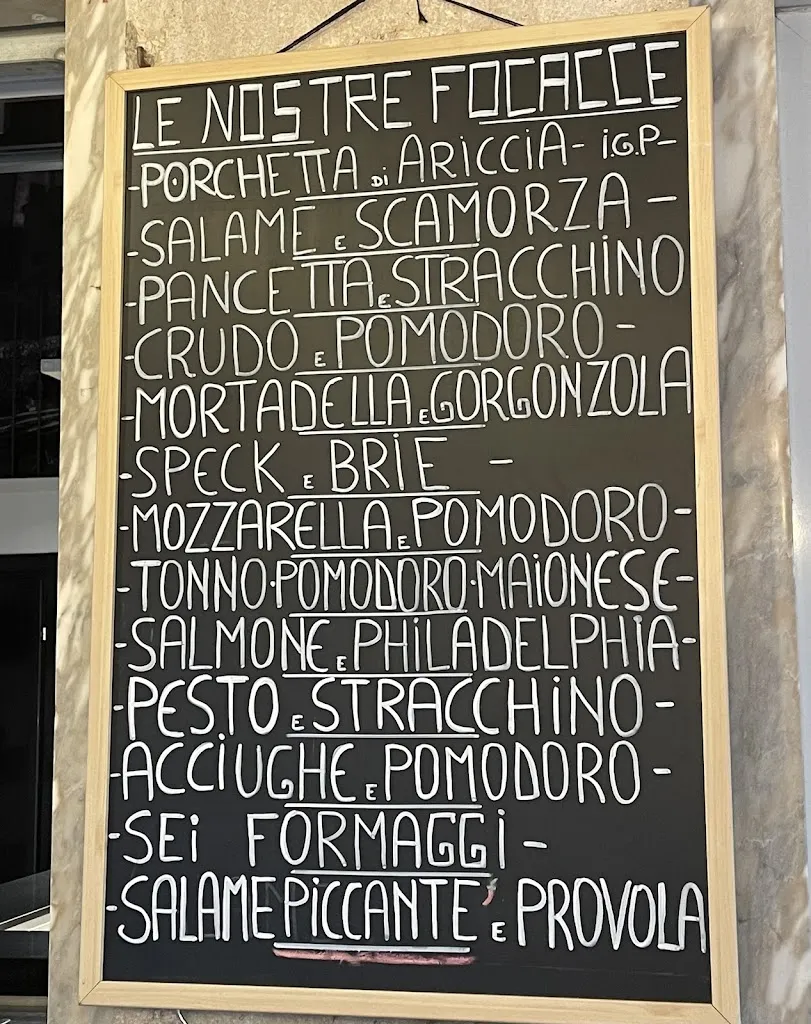 LE NOSTRE FOCACCE
-PORCHETTA DI ARICCIA- I.G.P-
-SALAME E SCAMORZA -
-PANCETTA E STRACCHINO
-CRUDO E POMODORO -
-MORTADELLA E GORGONZOLA
-SPECK E BRIE -
-MOZZARELLA E POMODORO-
-TONNO·POMODORO·MAIONESE-
-SALMONE E PHILADELPHIA-
-PESTO E STRACCHINO-
-ACCIUGHE E POMODORO -
-SEI FORMAGGI -
-SALAME PICCANTE E PROVOLA